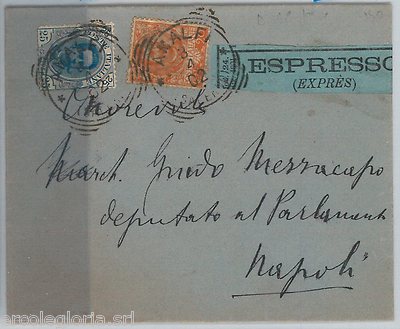 AMALFI
02
ESPRESSO
(EXPRÈS)
Onorevole
March. Guido Mezzacapo
deputato al Parlamento
Napoli
ercolegloria_srl